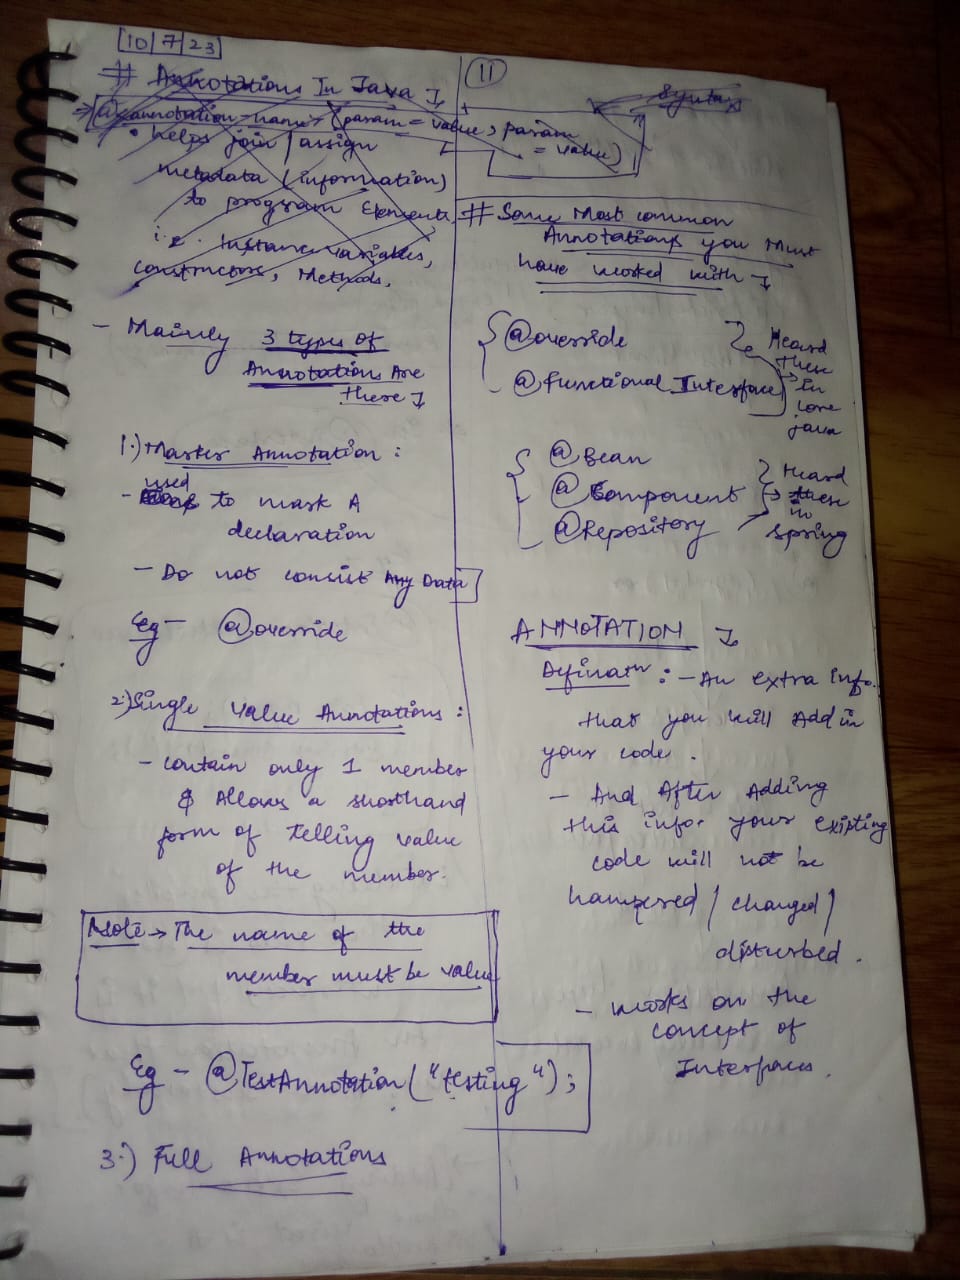 10/7/23
# Annotations In Java
@annotation-name (param = value, param = value)
• helps join / assign
metadata (information)
to program Elements
i.e. Instance variables,
constructors, Methods.
- Mainly 3 types of
Annotations Are
these
1.) Marker Annotation :
- used to mark A
declaration
- Do not consist Any Data
Eg - @override
2.) Single value Annotations :
- contain only 1 member
& Allows a shorthand
form of telling value
of the member.
Note → The name of the
member must be value
Eg - @TestAnnotation("testing");
3.) Full Annotations
11
Syntax
# Some Most common
Annotations you Must
have worked with
@override
@Functional Interface
Heard
these
in
core
java
@Bean
@Component
@Repository
Heard
these
in
Spring
ANNOTATION
Definatn : - An extra info.
that you will Add in
your code.
- And After Adding
this info. your existing
code will not be
hampered / changed /
disturbed.
- works on the
concept of
Interfaces.